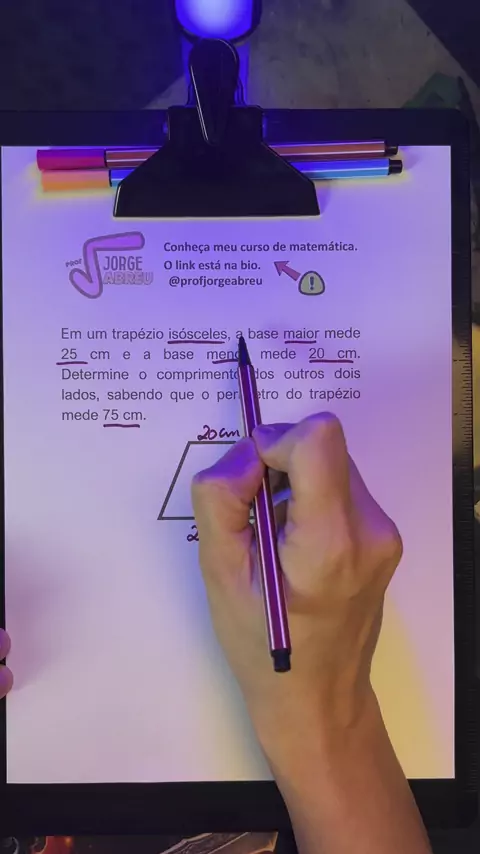 PROF JORGE
ABREU
Conheça meu curso de matemática.
O link está na bio.
@profjorgeabreu
Em um trapézio isósceles, a base maior mede
25 cm e a base mede 20 cm.
Determine o comprimento dos outros dois
lados, sabendo que o do trapézio
mede 75 cm.
20 cm